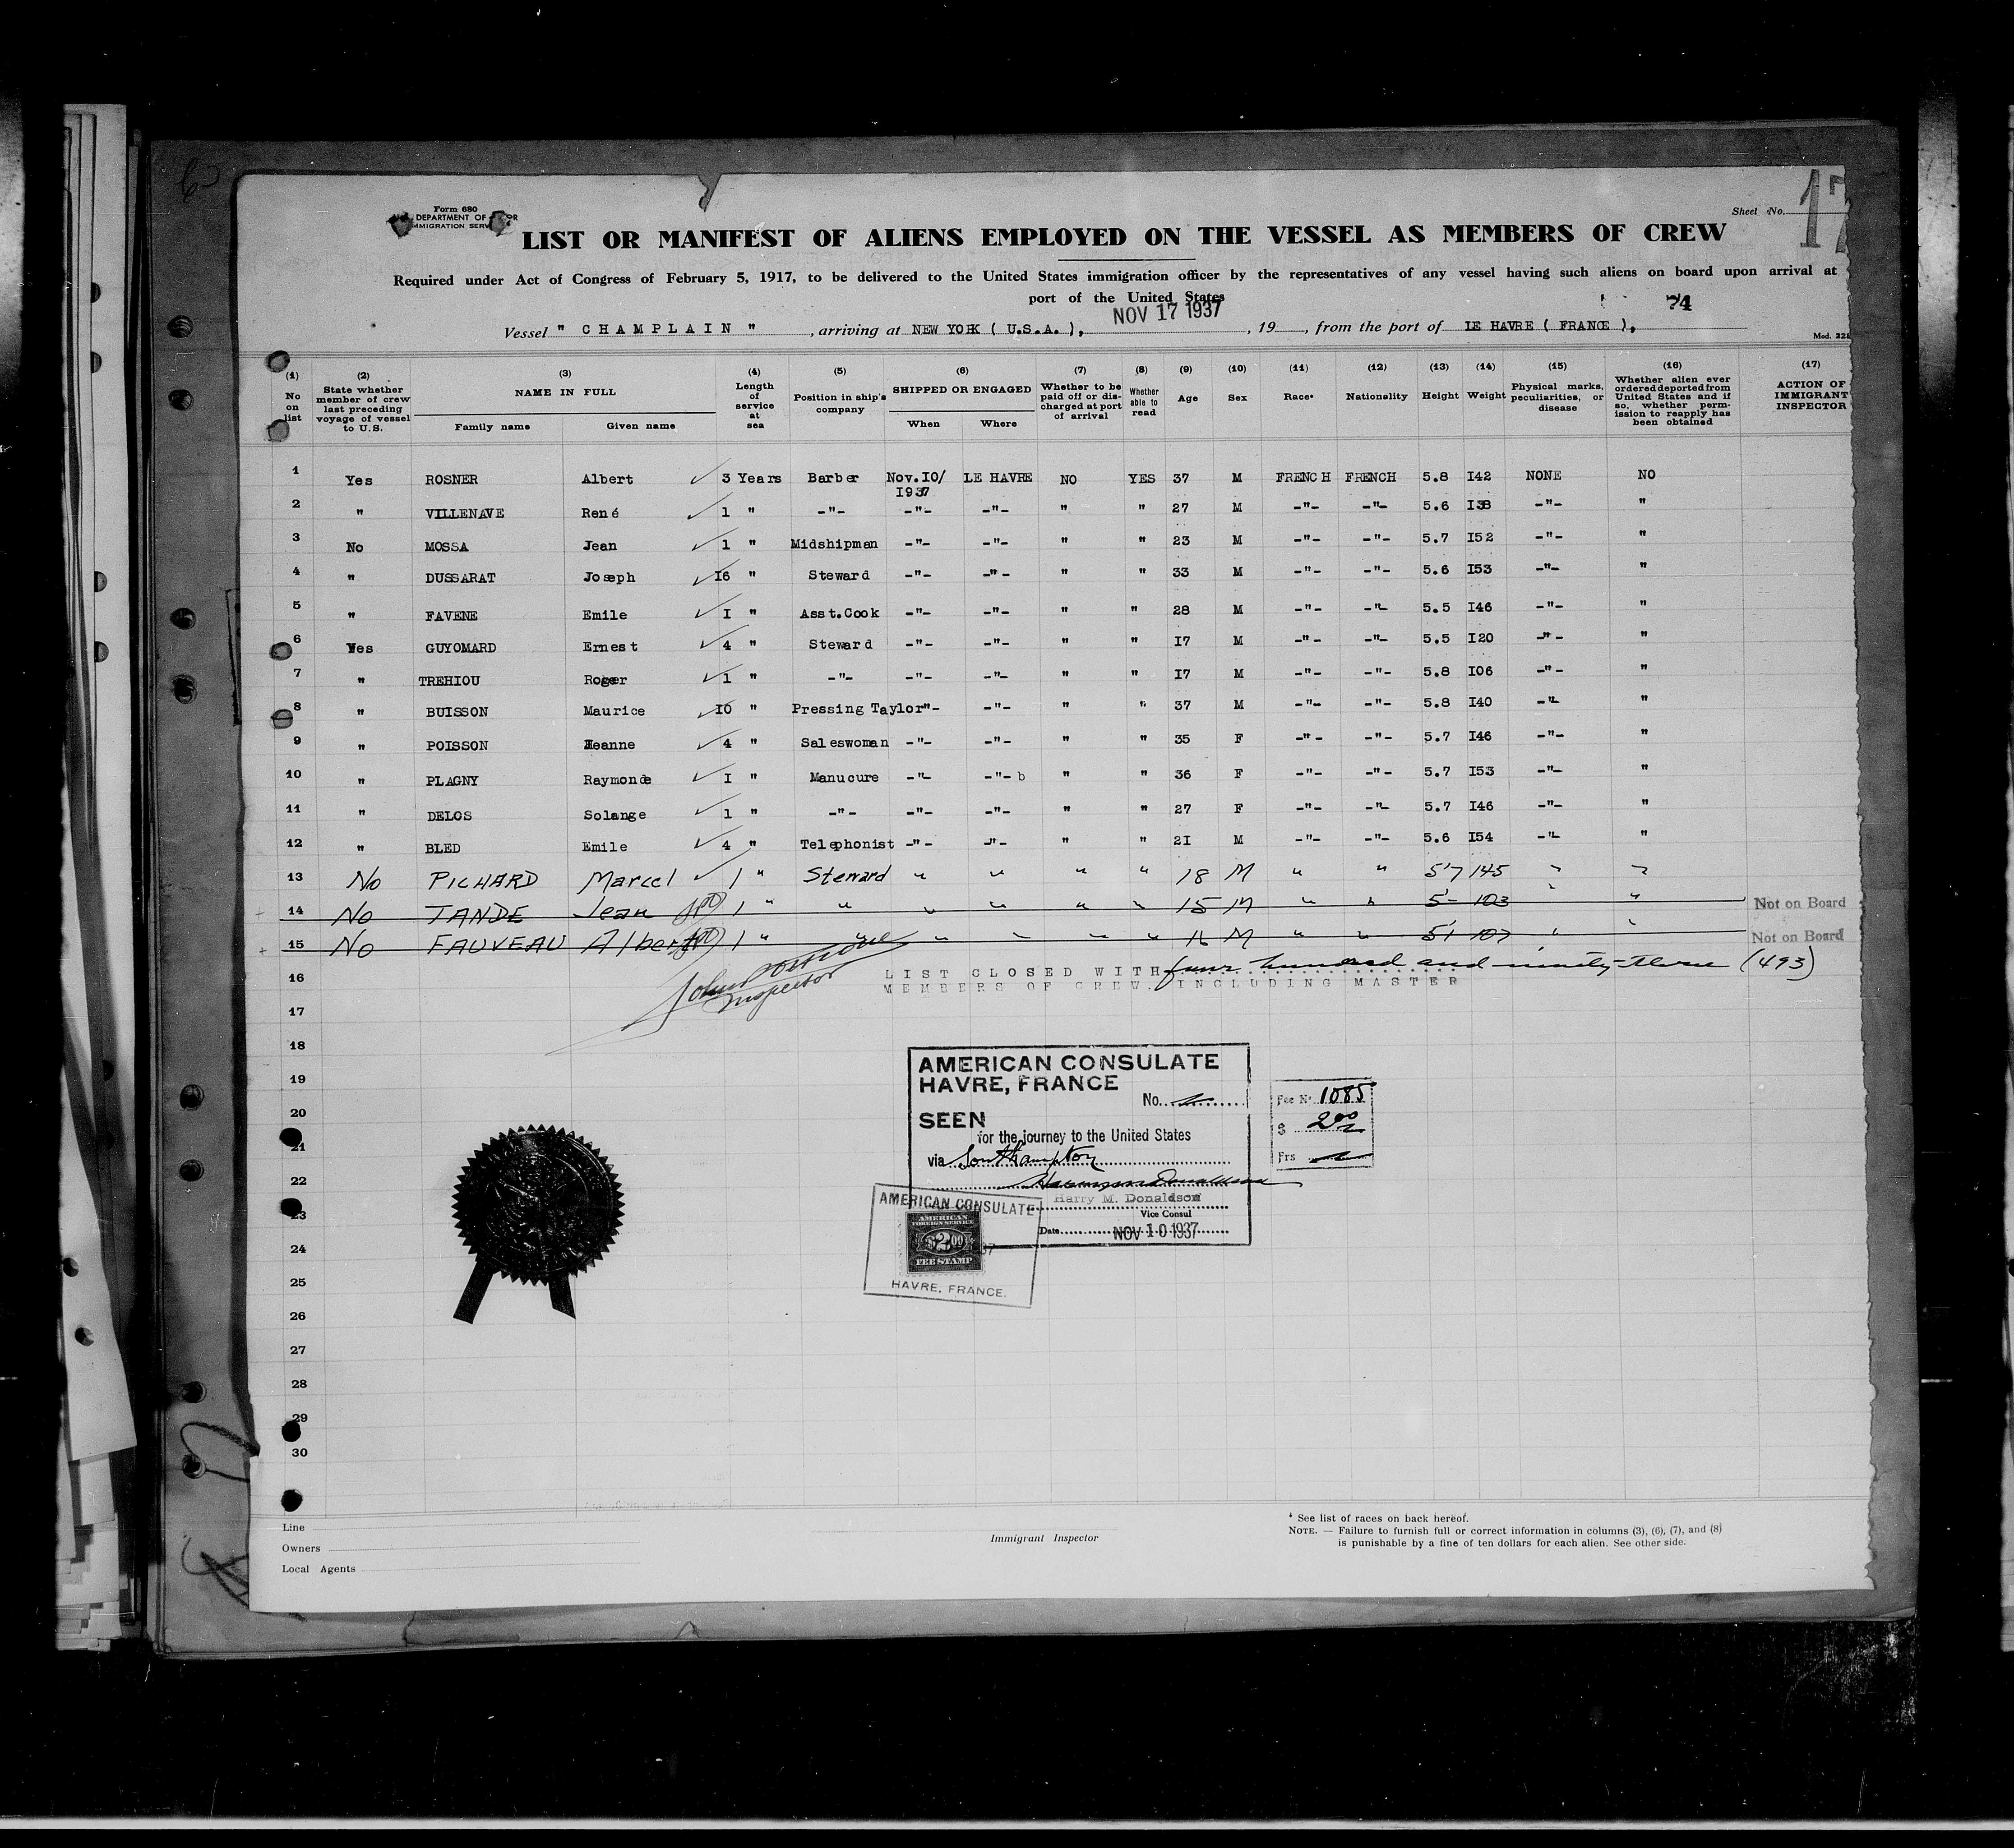 Form 680
DEPARTMENT OF
IMMIGRATION SERV
Sheet No. 17
LIST OR MANIFEST OF ALIENS EMPLOYED ON THE VESSEL AS MEMBERS OF CREW
Required under Act of Congress of February 5, 1917, to be delivered to the United States immigration officer by the representatives of any vessel having such aliens on board upon arrival at
port of the United States
74
Vessel " CHAMPLAIN ", arriving at NEW YORK ( U.S.A. ), NOV 17 1937, 19 , from the port of LE HAVRE ( FRANCE ),
Mod. 22
(1) No on list (2) State whether member of crew last preceding voyage of vessel to U.S. (3) NAME IN FULL Family name Given name (4) Length of service at sea (5) Position in ship's company (6) SHIPPED OR ENGAGED When Where (7) Whether to be paid off or discharged at port of arrival (8) Whether able to read (9) Age (10) Sex (11) Race* (12) Nationality (13) Height (14) Weight (15) Physical marks, peculiarities, or disease (16) Whether alien ever ordered deported from United States and if so, whether permission to reapply has been obtained (17) ACTION OF IMMIGRANT INSPECTOR
1 Yes ROSNER Albert ✓ 3 Years Barber Nov.10/1937 LE HAVRE NO YES 37 M FRENCH FRENCH 5.8 I42 NONE NO
2 " VILLENAVE René ✓ 1 " -"- -"- -"- " " 27 M -"- -"- 5.6 I38 -"- "
3 No MOSSA Jean ✓ 1 " Midshipman -"- -"- " " 23 M -"- -"- 5.7 I52 -"- "
4 " DUSSARAT Joseph ✓ I6 " Steward -"- -"- " " 33 M -"- -"- 5.6 I53 -"- "
5 " FAVENE Emile ✓ I " Asst.Cook -"- -"- " " 28 M -"- -"- 5.5 I46 -"- "
6 Yes GUYOMARD Ernest ✓ 4 " Steward -"- -"- " " I7 M -"- -"- 5.5 I20 -"- "
7 " TREHIOU Roger ✓ 1 " -"- -"- -"- " " I7 M -"- -"- 5.8 I06 -"- "
8 " BUISSON Maurice ✓ IO " Pressing Taylor"- -"- " " 37 M -"- -"- 5.8 I40 -"- "
9 " POISSON Jeanne ✓ 4 " Saleswoman -"- -"- " " 35 F -"- -"- 5.7 I46 -"- "
10 " PLAGNY Raymonde ✓ I " Manucure -"- -"- b " " 36 F -"- -"- 5.7 I53 -"- "
11 " DELOS Solange ✓ 1 " -"- -"- -"- " " 27 F -"- -"- 5.7 I46 -"- "
12 " BLED Emile ✓ 4 " Telephonist -"- -"- " " 2I M -"- -"- 5.6 I54 -"- "
13 No PICHARD Marcel ✓ 1 " Steward " " " " 18 M " " 5'7 145 " "
14 No TANDE Jean 1 " " " " " " 15 M " " 5- 103 " " Not on Board
15 No FAUVEAU Albert 1 " " " " " " 16 M " " 5'1 107 " " Not on Board
16 John
Inspector
LIST CLOSED WITH four hundred and ninety-three (493)
MEMBERS OF CREW. INCLUDING MASTER
17
18
19
20
21
22
23
24
25
26
27
28
29
30
AMERICAN CONSULATE
HAVRE, FRANCE
No.
SEEN
for the journey to the United States
via Southampton
Harry M. Donaldson
Harry M. Donaldson
Vice Consul
Date NOV 10 1937
Fee No 1085
$ 2.00
Frs
AMERICAN CONSULATE
AMERICAN
FOREIGN SERVICE
$2.00
FEE STAMP
HAVRE, FRANCE.
Line
Owners
Local Agents
Immigrant Inspector
* See list of races on back hereof.
NOTE. — Failure to furnish full or correct information in columns (3), (6), (7), and (8)
is punishable by a fine of ten dollars for each alien. See other side.